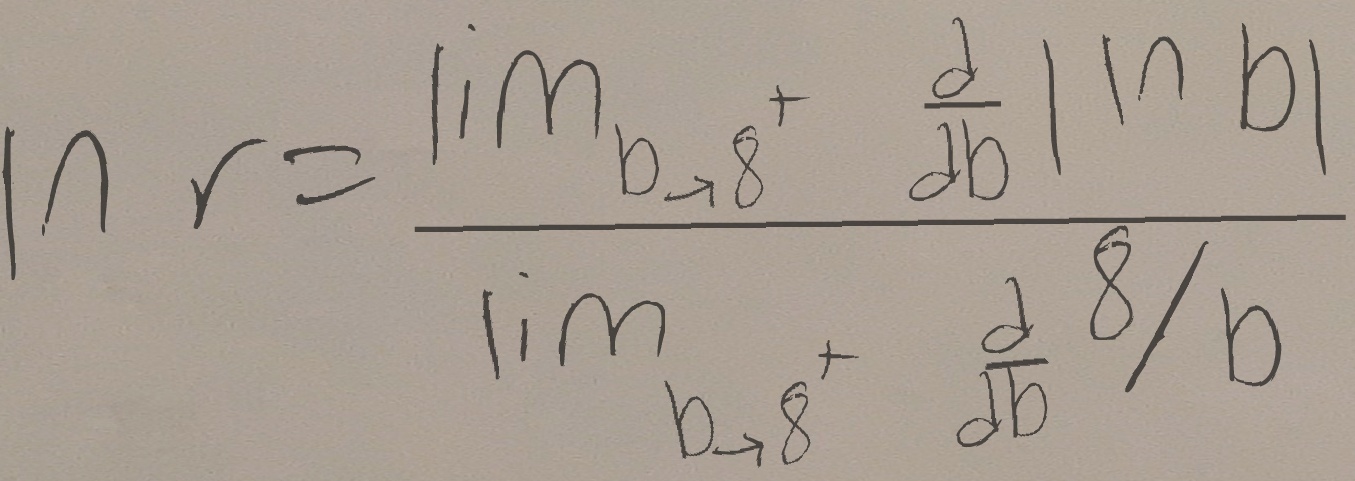 \ln r = \frac{\lim_{b \to 8^+} \frac{d}{db} |\ln b|}{\lim_{b \to 8^+} \frac{d}{db} 8/b}